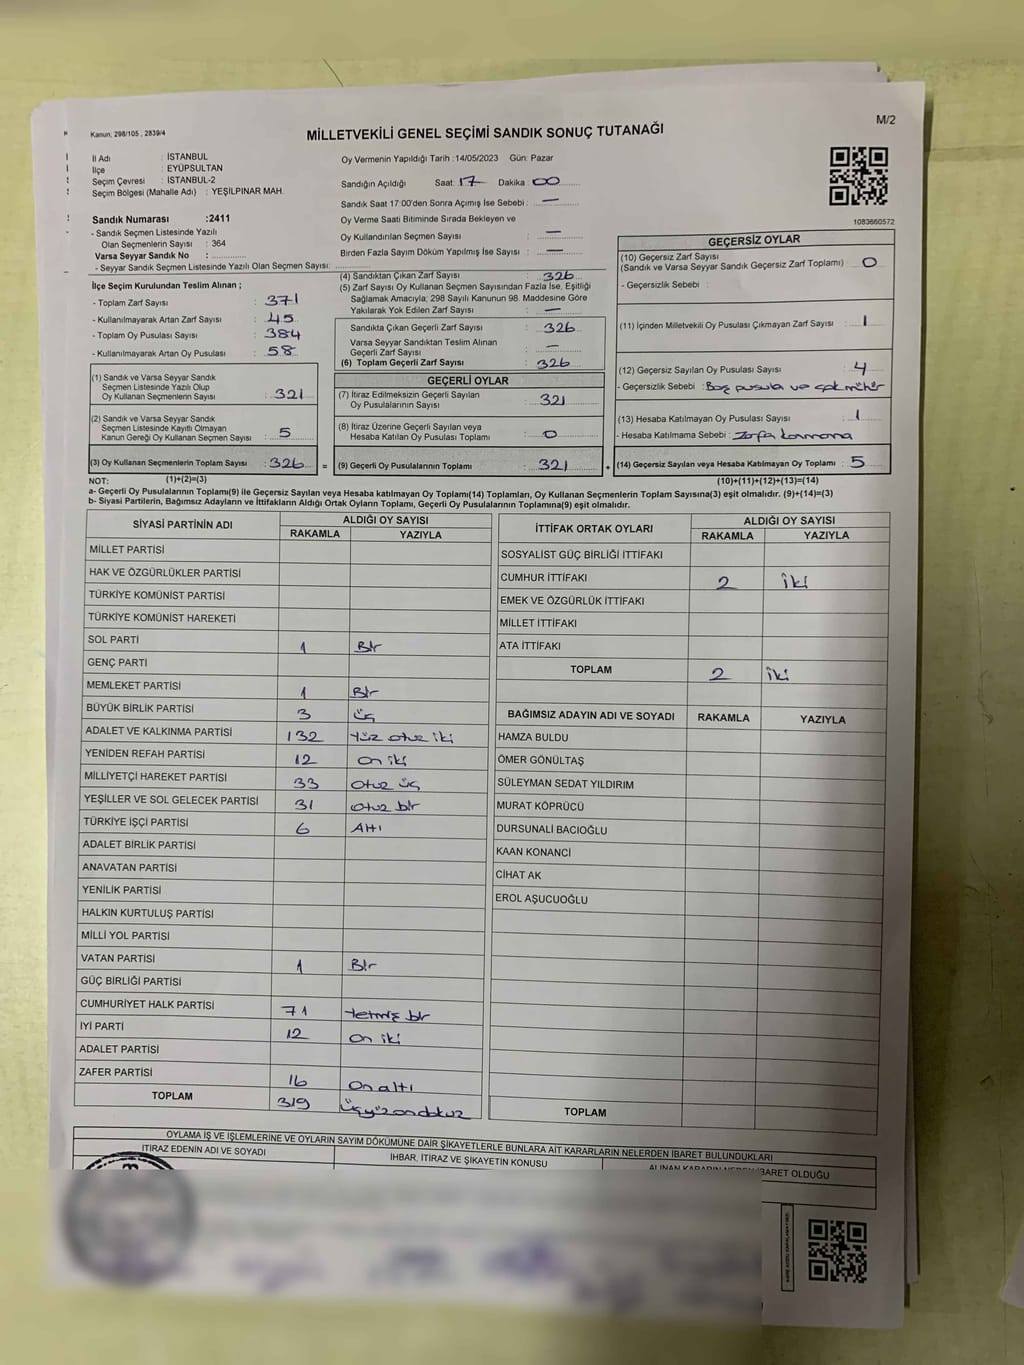 Kanun; 298/105 , 2839/4
MİLLETVEKİLİ GENEL SEÇİMİ SANDIK SONUÇ TUTANAĞI
M/2
İl Adı : İSTANBUL
İlçe : EYÜPSULTAN
Seçim Çevresi : İSTANBUL-2
Seçim Bölgesi (Mahalle Adı) : YEŞİLPINAR MAH.
Oy Vermenin Yapıldığı Tarih :14/05/2023 Gün: Pazar
Sandığın Açıldığı Saat: 17 Dakika : 00
Sandık Saat 17:00'den Sonra Açımış İse Sebebi : —
Oy Verme Saati Bitiminde Sırada Bekleyen ve
Oy Kullandırılan Seçmen Sayısı : —
Birden Fazla Sayım Döküm Yapılmış İse Sayısı : —
1083660572
Sandık Numarası :2411
- Sandık Seçmen Listesinde Yazılı
Olan Seçmenlerin Sayısı : 364
Varsa Seyyar Sandık No :
- Seyyar Sandık Seçmen Listesinde Yazılı Olan Seçmen Sayısı:
İlçe Seçim Kurulundan Teslim Alınan ;
- Toplam Zarf Sayısı : 371
- Kullanılmayarak Artan Zarf Sayısı : 45
- Toplam Oy Pusulası Sayısı : 384
- Kullanılmayarak Artan Oy Pusulası : 58
(1) Sandık ve Varsa Seyyar Sandık
Seçmen Listesinde Yazılı Olup
Oy Kullanan Seçmenlerin Sayısı : 321
(2) Sandık ve Varsa Seyyar Sandık
Seçmen Listesinde Kayıtlı Olmayan
Kanun Gereği Oy Kullanan Seçmen Sayısı : 5
(3) Oy Kullanan Seçmenlerin Toplam Sayısı : 326
(4) Sandıktan Çıkan Zarf Sayısı : 326
(5) Zarf Sayısı Oy Kullanan Seçmen Sayısından Fazla İse, Eşitliği
Sağlamak Amacıyla; 298 Sayılı Kanunun 98. Maddesine Göre
Yakılarak Yok Edilen Zarf Sayısı : —
Sandıkta Çıkan Geçerli Zarf Sayısı : 326
Varsa Seyyar Sandıktan Teslim Alınan
Geçerli Zarf Sayısı : —
(6) Toplam Geçerli Zarf Sayısı : 326
GEÇERLİ OYLAR
(7) İtiraz Edilmeksizin Geçerli Sayılan
Oy Pusulalarının Sayısı : 321
(8) İtiraz Üzerine Geçerli Sayılan veya
Hesaba Katılan Oy Pusulası Toplamı : 0
= (9) Geçerli Oy Pusulalarının Toplamı : 321 +
GEÇERSİZ OYLAR
(10) Geçersiz Zarf Sayısı
(Sandık ve Varsa Seyyar Sandık Geçersiz Zarf Toplamı) : 0
- Geçersizlik Sebebi :
(11) İçinden Milletvekili Oy Pusulası Çıkmayan Zarf Sayısı : 1
(12) Geçersiz Sayılan Oy Pusulası Sayısı : 4
- Geçersizlik Sebebi : Boş pusula ve çok mühür
(13) Hesaba Katılmayan Oy Pusulası Sayısı : 1
- Hesaba Katılmama Sebebi :
(14) Geçersiz Sayılan veya Hesaba Katılmayan Oy Toplamı : 5
NOT: (1)+(2)=(3) (10)+(11)+(12)+(13)=(14)
a- Geçerli Oy Pusulalarının Toplamı(9) ile Geçersiz Sayılan veya Hesaba katılmayan Oy Toplamı(14) Toplamları, Oy Kullanan Seçmenlerin Toplam Sayısına(3) eşit olmalıdır. (9)+(14)=(3)
b- Siyasi Partilerin, Bağımsız Adayların ve İttifakların Aldığı Ortak Oyların Toplamı, Geçerli Oy Pusulalarının Toplamına(9) eşit olmalıdır.
SİYASİ PARTİNİN ADI ALDIĞI OY SAYISI
RAKAMLA YAZIYLA
MİLLET PARTİSİ
HAK VE ÖZGÜRLÜKLER PARTİSİ
TÜRKİYE KOMÜNİST PARTİSİ
TÜRKİYE KOMÜNİST HAREKETİ
SOL PARTİ 1 Bir
GENÇ PARTİ
MEMLEKET PARTİSİ 1 Bir
BÜYÜK BİRLİK PARTİSİ 3 üç
ADALET VE KALKINMA PARTİSİ 132 Yüz otuz iki
YENİDEN REFAH PARTİSİ 12 on iki
MİLLİYETÇİ HAREKET PARTİSİ 33 otuz üç
YEŞİLLER VE SOL GELECEK PARTİSİ 31 otuz bir
TÜRKİYE İŞÇİ PARTİSİ 6 Altı
ADALET BİRLİK PARTİSİ
ANAVATAN PARTİSİ
YENİLİK PARTİSİ
HALKIN KURTULUŞ PARTİSİ
MİLLİ YOL PARTİSİ
VATAN PARTİSİ 1 Bir
GÜÇ BİRLİĞİ PARTİSİ
CUMHURİYET HALK PARTİSİ 71 Yetmiş bir
İYİ PARTİ 12 on iki
ADALET PARTİSİ
ZAFER PARTİSİ 16 On altı
TOPLAM 319 üçyüzondokuz
İTTİFAK ORTAK OYLARI ALDIĞI OY SAYISI
RAKAMLA YAZIYLA
SOSYALİST GÜÇ BİRLİĞİ İTTİFAKI
CUMHUR İTTİFAKI 2 iki
EMEK VE ÖZGÜRLÜK İTTİFAKI
MİLLET İTTİFAKI
ATA İTTİFAKI
TOPLAM 2 iki
BAĞIMSIZ ADAYIN ADI VE SOYADI RAKAMLA YAZIYLA
HAMZA BULDU
ÖMER GÖNÜLTAŞ
SÜLEYMAN SEDAT YILDIRIM
MURAT KÖPRÜCÜ
DURSUNALİ BACIOĞLU
KAAN KONANCİ
CİHAT AK
EROL AŞUCUOĞLU
TOPLAM
OYLAMA İŞ VE İŞLEMLERİNE VE OYLARIN SAYIM DÖKÜMÜNE DAİR ŞİKAYETLERLE BUNLARA AİT KARARLARIN NELERDEN İBARET BULUNDUKLARI
İTİRAZ EDENİN ADI VE SOYADI İHBAR, İTİRAZ VE ŞİKAYETİN KONUSU ALINAN KARARIN NEDEN İBARET OLDUĞU